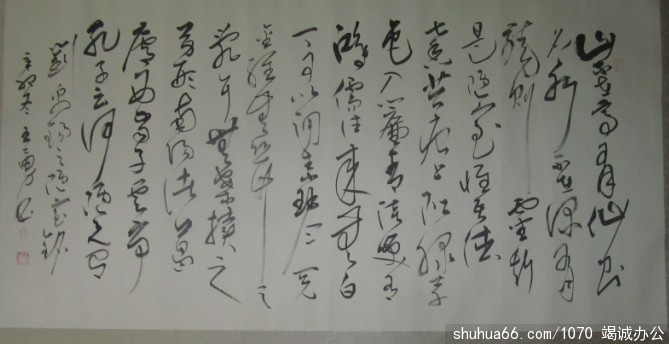 山不在高有仙则
名水不在深有
龙则灵斯
是陋室惟吾德
馨苔痕上阶绿草
色入帘青谈笑有
鸿儒往来无白
丁可以调素琴阅
金经无丝竹之
乱耳无案牍之
劳形南阳诸葛
庐西蜀子云亭
孔子云何陋之有
刘禹锡之陋室铭
辛卯冬王书
shuhua66.com/1070 竭诚办公